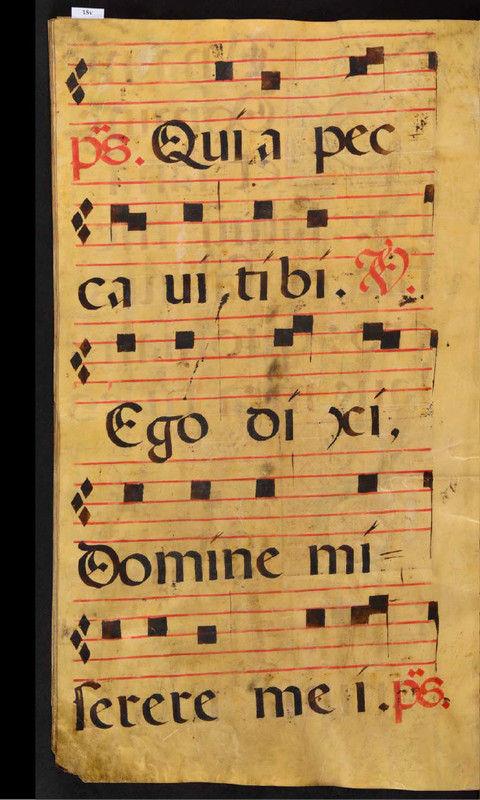 15v
ps. Quia pec
ca ui tibi. V.
Ego di xi,
Domine mi=
serere me i. ps.